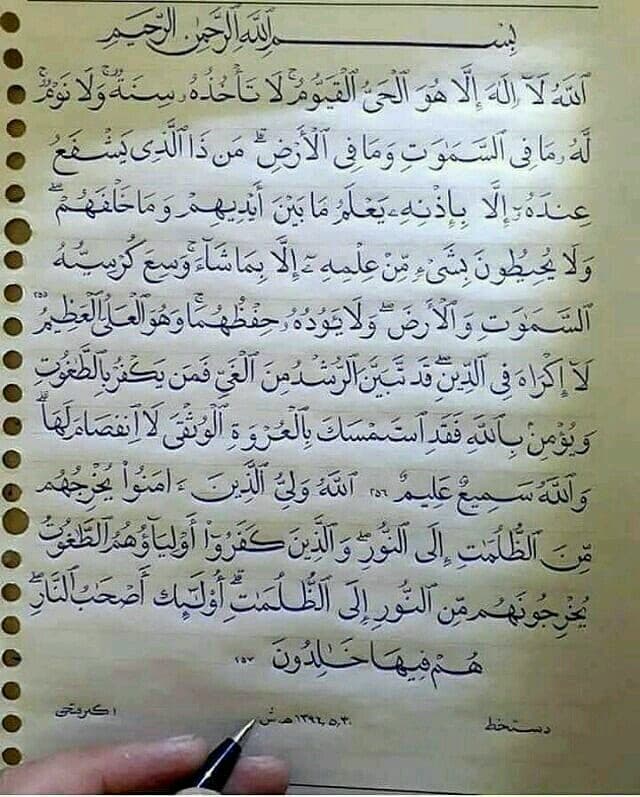 بِسْمِ اللَّهِ الرَّحْمَٰنِ الرَّحِيمِ
اَللَّهُ لَآ إِلَٰهَ إِلَّا هُوَ الْحَيُّ الْقَيُّومُ ۚ لَا تَأْخُذُهُۥ سِنَةٌ وَلَا نَوْمٌ ۚ
لَّهُۥ مَا فِى السَّمَٰوَٰتِ وَمَا فِى الْأَرْضِ ۗ مَن ذَا الَّذِى يَشْفَعُ
عِندَهُۥٓ إِلَّا بِإِذْنِهِۦ ۚ يَعْلَمُ مَا بَيْنَ أَيْدِيهِمْ وَمَا خَلْفَهُمْ ۖ
وَلَا يُحِيطُونَ بِشَىْءٍ مِّنْ عِلْمِهِۦٓ إِلَّا بِمَا شَآءَ ۚ وَسِعَ كُرْسِيُّهُ
السَّمَٰوَٰتِ وَالْأَرْضَ ۖ وَلَا يَـُٔودُهُۥ حِفْظُهُمَا ۚ وَهُوَ الْعَلِىُّ الْعَظِيمُ ٢٥٥
لَآ إِكْرَاهَ فِى الدِّينِ ۖ قَد تَّبَيَّنَ الرُّشْدُ مِنَ الْغَىِّ ۚ فَمَن يَكْفُرْ بِالطَّٰغُوتِ
وَيُؤْمِنۢ بِاللَّهِ فَقَدِ اسْتَمْسَكَ بِالْعُرْوَةِ الْوُثْقَىٰ لَا انفِصَامَ لَهَا ۗ
وَاللَّهُ سَمِيعٌ عَلِيمٌ ٢٥٦ اَللَّهُ وَلِىُّ الَّذِينَ ءَامَنُوا۟ يُخْرِجُهُم
مِّنَ الظُّلُمَٰتِ إِلَى النُّورِ ۖ وَالَّذِينَ كَفَرُوٓا۟ أَوْلِيَآؤُهُمُ الطَّٰغُوتُ
يُخْرِجُونَهُم مِّنَ النُّورِ إِلَى الظُّلُمَاتِ ۗ أُو۟لَٰٓئِكَ أَصْحَابُ النَّارِ ۖ
هُمْ فِيهَا خَالِدُونَ ٢٥٧
دستخط ١٣٩٤،٥،٣٠ هـ ش اکبر فتحی